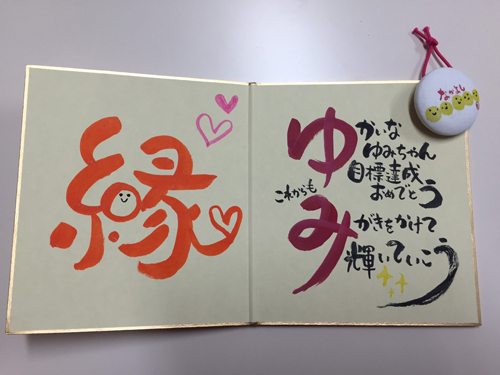 縁
ゆかいな
ゆみちゃん
目標達成
おめでとう
これからも
みがきをかけて
輝いていこう
なかよし